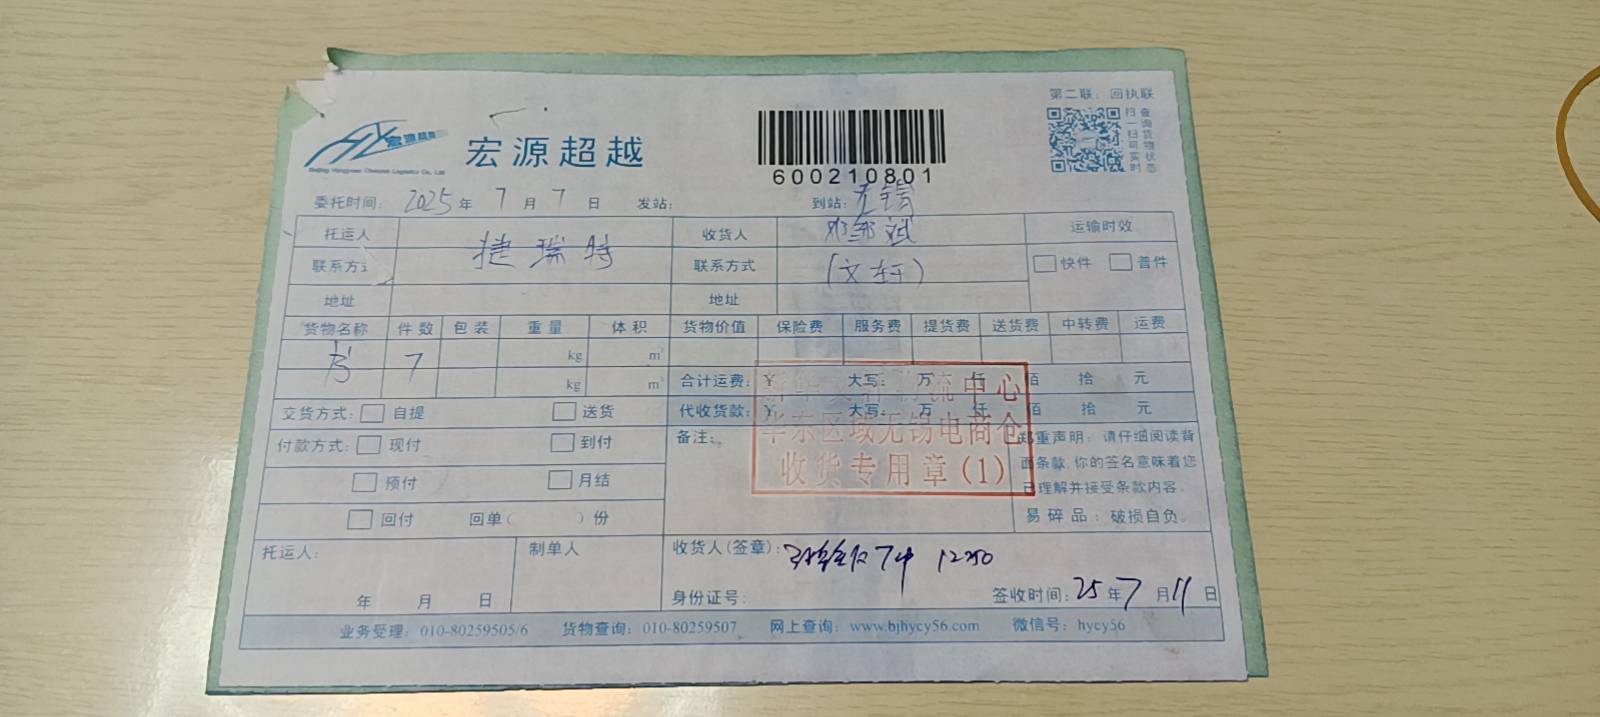 第二联：回执联
宏源超越
Beijing Hongyuan Chaoyue Logistics Co., Ltd
宏源超越
600210801
扫一扫可实时
查询货物状态
委托时间：2025年 7月 7日 发站： 到站：无锡
托运人 捷瑞特 收货人 运输时效
联系方式 联系方式 (文轩) 快件 普件
地址 地址
货物名称 件数 包装 重量 体积 货物价值 保险费 服务费 提货费 送货费 中转费 运费
书 7 kg m³
kg m³
合计运费：¥ 大写： 万 仟 佰 拾 元
代收货款：¥ 大写： 万 仟 佰 拾 元
交货方式： 自提 送货
付款方式： 现付 到付
预付 月结
回付 回单( )份
备注：
物流中心
华东区域无锡电商仓
收货专用章(1)
郑重声明：请仔细阅读背
面条款,你的签名意味着您
已理解并接受条款内容。
易碎品：破损自负。
托运人： 制单人
年 月 日
收货人(签章)： 7件
身份证号： 签收时间：25年7月11日
业务受理：010-80259505/6 货物查询：010-80259507 网上查询：www.bjhycy56.com 微信号：hycy56